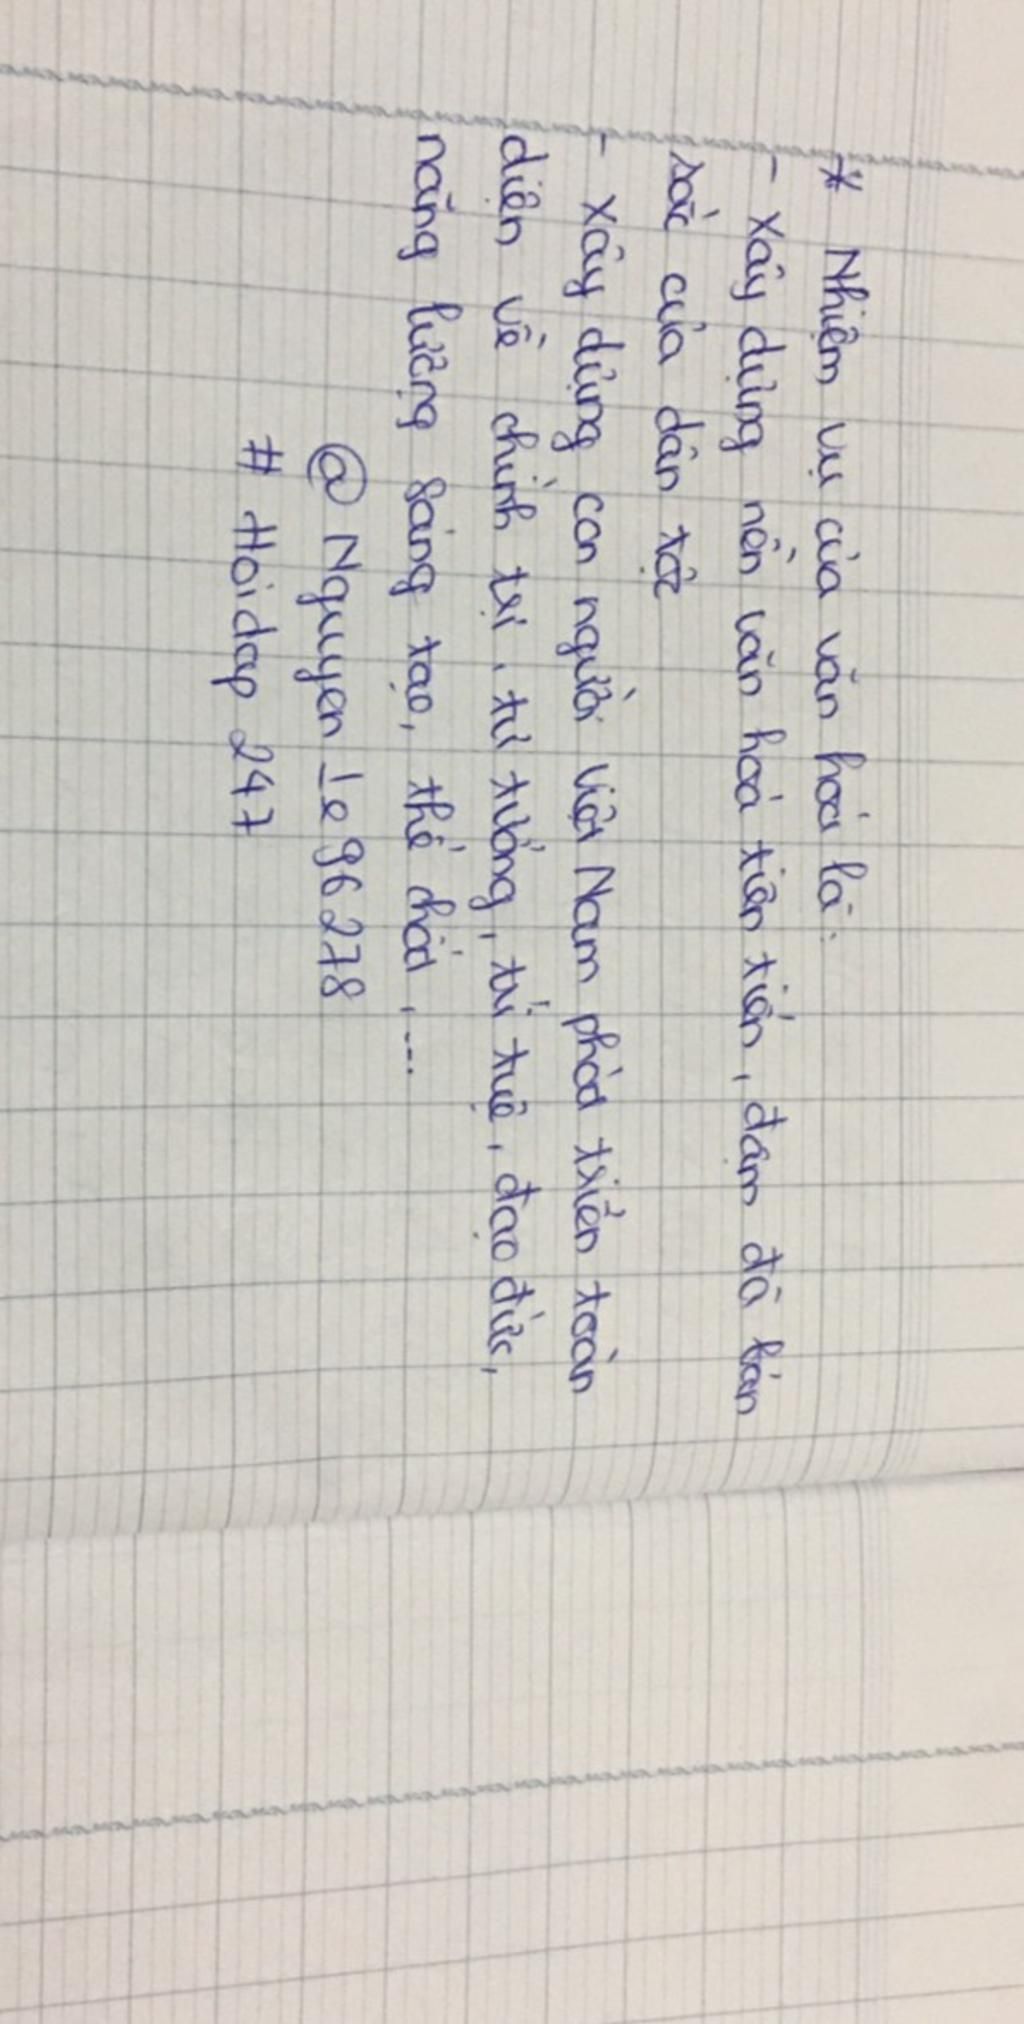 * Nhiệm vụ của văn hoá là:
- Xây dựng nền văn hoá tiên tiến, đậm đà bản
sắc của dân tộc
- Xây dựng con người Việt Nam phát triển toàn
diện về chính trị, tư tưởng, trí tuệ, đạo đức,
năng lượng sáng tạo, thể chất,....
@ Nguyen Le96278
# Hoidap 247